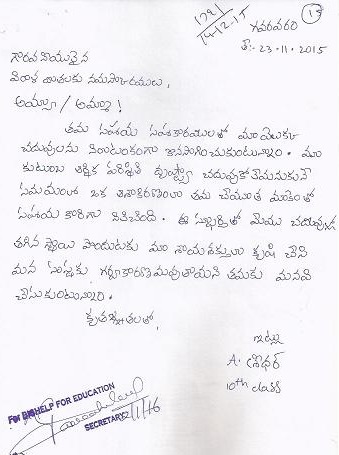 1791
14-12-15
13
గవరవరం
తే:- 23-11-2015
గౌరవనీయులైన
విరాళ దాతలకు నమస్కారములు,
అయ్యా / అమ్మా !
తమ సహాయ సహకారములతో మా
చదువులను నిరాటంకంగా కొనసాగించుకుంటున్నాం. మా
కుటుంబ ఆర్థిక పరిస్థితి దృష్ట్యా చదువుకోలేమనుకునే
సమయంలో ఒక తమ చేయూత మాకెంతో
సహాయ కారిగా నిలిచింది. ఈ స్ఫూర్తితో మేము చదువుకు
తగిన స్థాయి పొందుటకు మా శాయశక్తులా కృషి చేసి
మన సంస్థకు గర్వకారణమవుతామని తమకు మనవి
చేసుకుంటున్నాం.
కృతజ్ఞతలతో,
ఇట్లు
A. శ్రీధర్
10th class
For BIGHELP FOR EDUCATION
SECRETARY
2/1/16